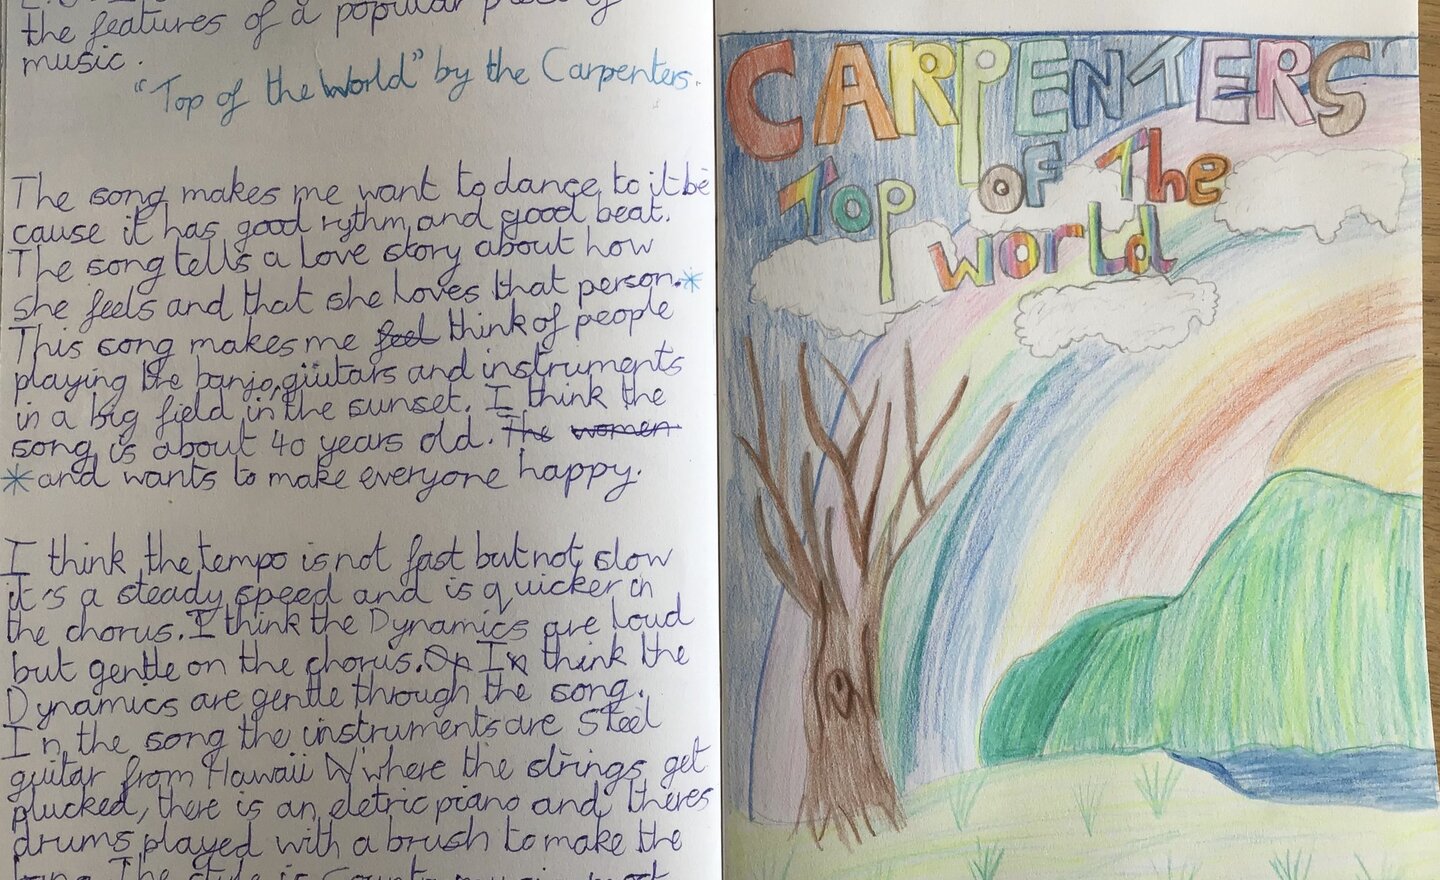 the features of a popular piece of
music.
"Top of the World" by the Carpenters.
The song makes me want to dance to it be
cause it has good rythm and good beat.
The song tells a love story about how
she feels and that she loves that person.*
This song makes me feel think of people
playing the banjo, guitars and instruments
in a big field in the sunset. I think the
song is about 40 years old. The women
* and wants to make everyone happy.
I think the tempo is not fast but not slow
it's a steady speed and is quicker in
the chorus. I think the Dynamics are loud
but gentle on the chorus. I think the
Dynamics are gentle through the song.
In the song the instruments are Steel
guitar from Hawaii where the strings get
plucked, there is an eletric piano and theres
drums played with a brush to make the
The style is Country music most
CARPENTERS
Top of The
world